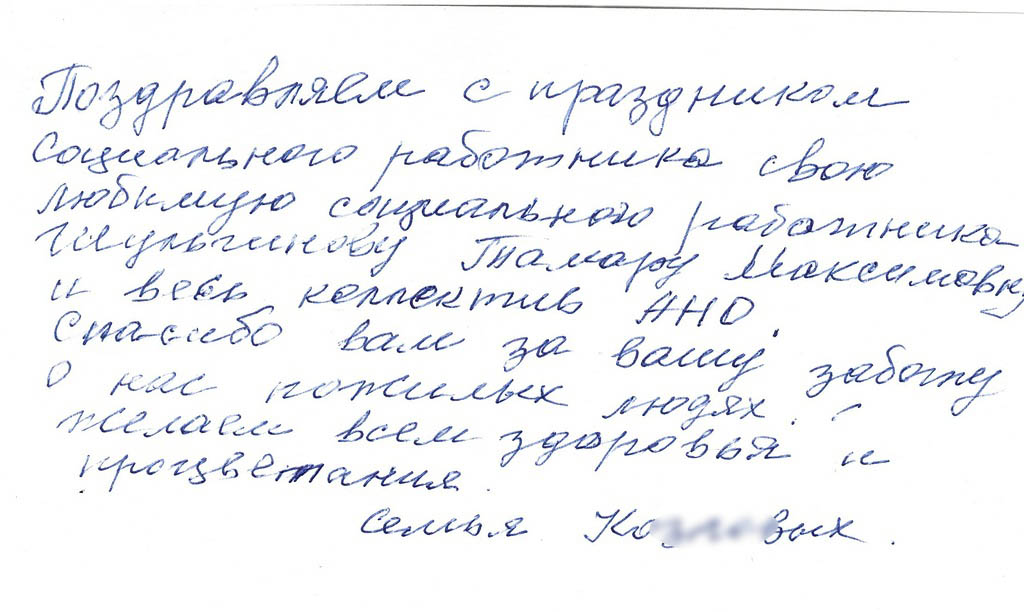 Поздравляем с праздником
социального работника свою
любимую социального работника
Шульгинову Тамару Максимовну
и весь коллектив АНО.
Спасибо вам за вашу заботу
о нас пожилых людях.
желаем всем здоровья и
процветания.
семья